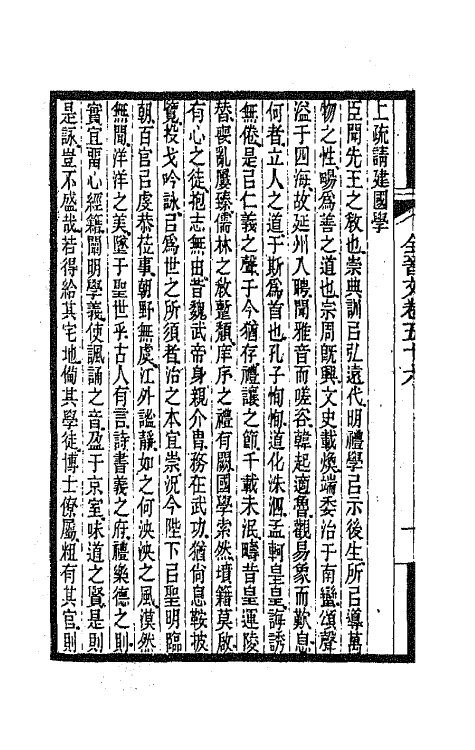 全晉文卷五十六
上疏請建國學
臣聞先王之敎也崇典訓㠯弘遠代明禮學㠯示後生所㠯導萬
物之性暢爲善之道也宗周旣興文史載煥端委治于南蠻頌聲
溢于四海故延州入聘聞雅音而嗟咨韓起適魯觀易象而歎息
何者立人之道于斯爲首也孔子恂恂道化洙泗孟軻皇皇誨誘
無倦是㠯仁義之聲于今猶存禮讓之節千載未泯疇昔皇運陵
替喪亂屢臻儒林之敎蹔頹庠序之禮有闕國學索然墳籍莫啟
有心之徒抱志無由昔魏武帝身親介冑務在武功猶尙息鞍披
覽投戈吟詠㠯爲世之所須者治之本宜崇況今陛下㠯聖明臨
朝百官㠯虔恭莅事朝野無虞江外謐靜如之何泱泱之風漠然
無聞洋洋之美墜于聖世乎古人有言詩書義之府禮樂德之則
實宜畱心經籍闡明學義使諷誦之音盈于京室味道之賢是則
是詠豈不盛哉若得給其宅地備其學徒博士僚屬粗有其官則